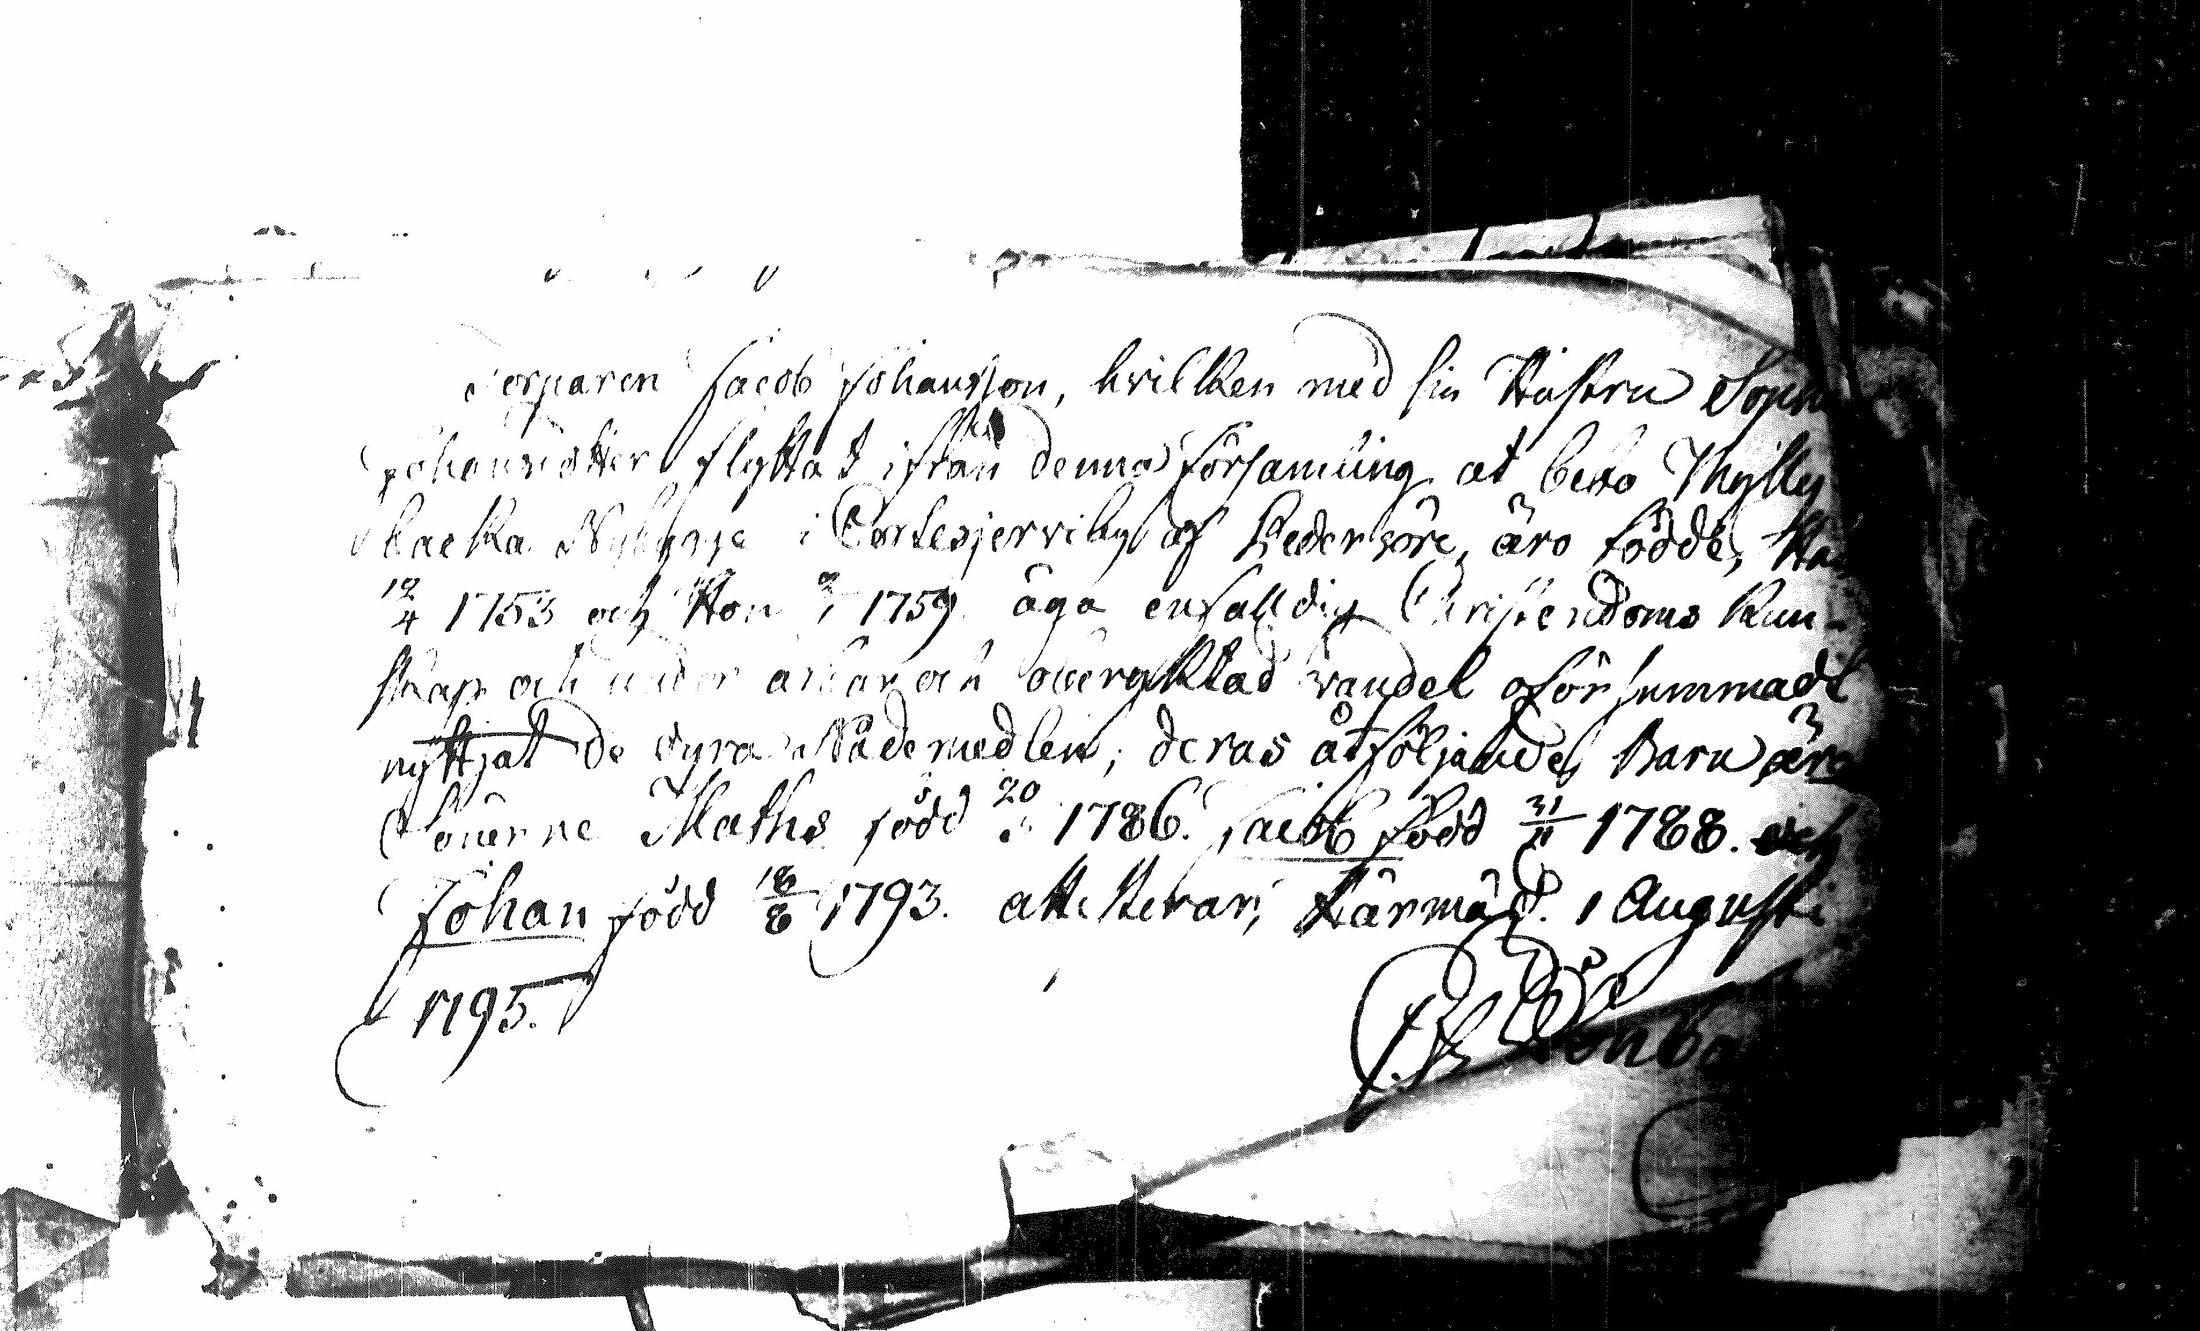 Torparen Jacob Johansson, hvilken med sin Hustru Soph
Johansdotter flyttat ifrån denna församling at bebo Thylly
backa Nybygge i Cortesjerviby af Pedersöre, äro födde, Han
12/4 1753 och Hon 1759. äga enfalldig Christendoms Kun-
skap och under ärbar och oberyktad vandel oförsummadt
nyttjat de dyra Nådemedlen; deras åtföljande Barn äro
Sönerne Maths född 20 1786. Jacob född 31/11 1788. och
Johan född 18/8 1793. attesterar; Kärmäd. 1 Augusti
1795.